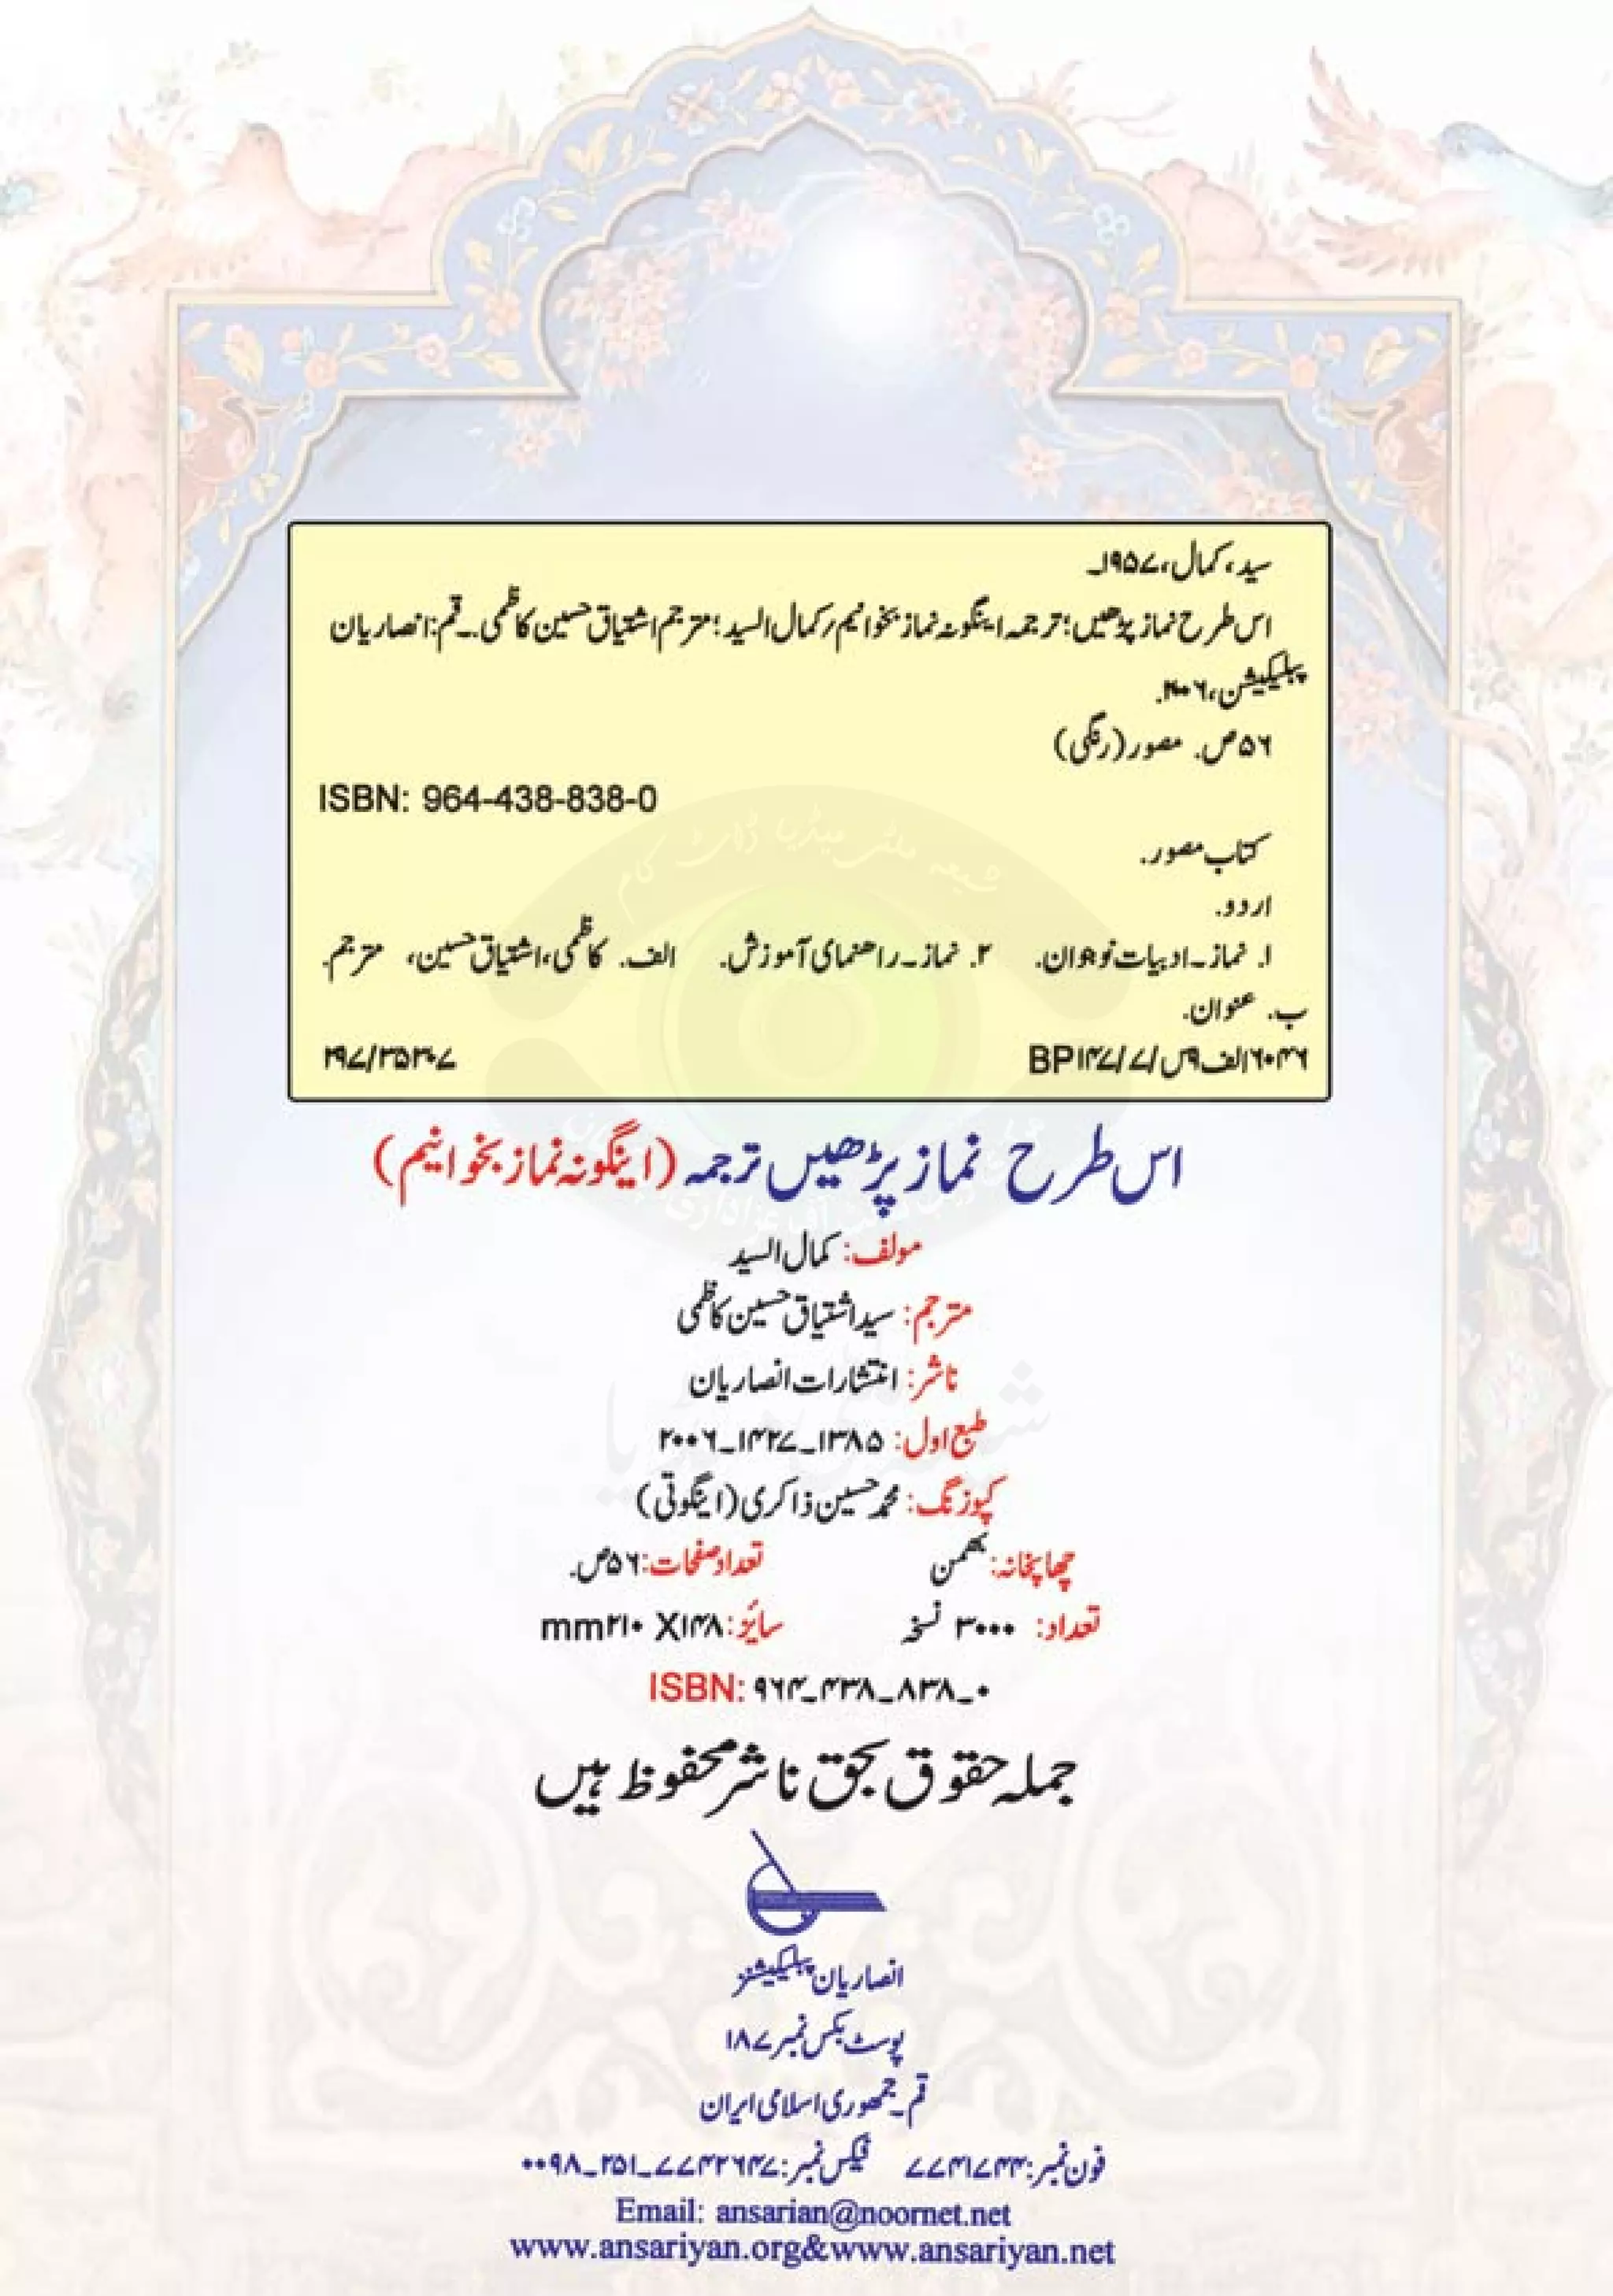 سید، کمال، ۱۹۵۷ـ
اس طرح نماز پڑھیں؛ ترجمہ اینگونہ نماز بخوانیم / کمال السید؛ مترجم اشتیاق حسین کاظمی.ـ قم: انصاریان
پبلیکیشن، ۲۰۰۶.
۵۶ ص. مصور (رنگی)
ISBN: 964-438-838-0
کتاب مصور.
اردو.
۱. نماز ـ ادبیات نوجوان. ۲. نماز ـ راھنمای آموزش. الف. کاظمی، اشتیاق حسین، مترجم.
ب. عنوان.
۲۹۷/۳۵۳۰۷
اس طرح نماز پڑھیں ترجمہ (اینگونہ نماز بخوانیم)
مولف: کمال السید
مترجم: سید اشتیاق حسین کاظمی
ناشر: انتشارات انصاریان
طبع اول: ۱۳۸۵ـ۱۴۲۷ـ۲۰۰۶
کپوزنگ: محمد حسین ذاکری (اینگوتی)
چھاپخانہ: بھمن تعداد صفحات: ۵۶ ص.
تعداد: ۳۰۰۰ نسخہ سائز: ۱۴۸X ۲۱۰mm
ISBN: ۹۶۴ـ۴۳۸ـ۸۳۸ـ۰
جملہ حقوق بحق ناشر محفوظ ہیں
انصاریان پبلیکیشنز
پوسٹ بکس نمبر ۱۸۷
قم ـ جمھوری اسلامی ایران
فون نمبر: ۷۷۴۱۷۴۴ فیکس نمبر: ۷۷۴۲۶۴۷ـ۲۵۱ـ۰۰۹۸
Email: ansarian@noornet.net
www.ansariyan.org&www.ansariyan.net
شیعہ ملٹی میڈیا ڈاٹ کام